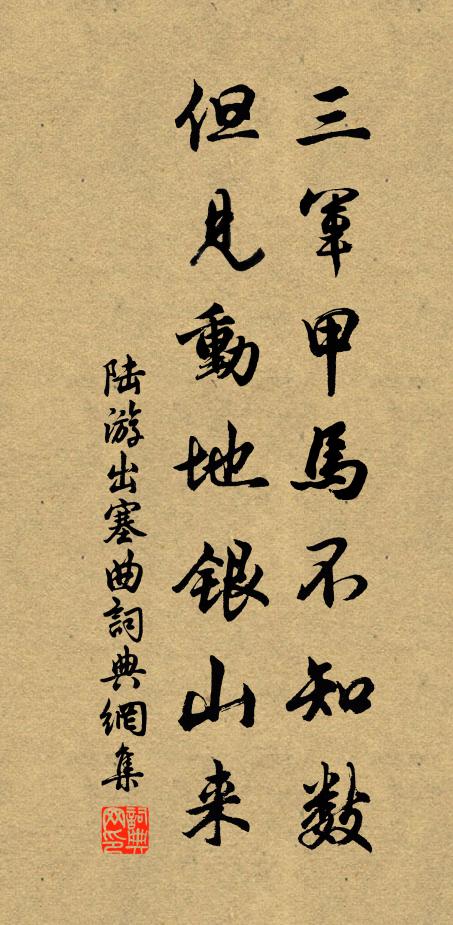 三軍甲馬不知數
但見動地銀山来
陆游出塞曲詞典網集
詞典网印